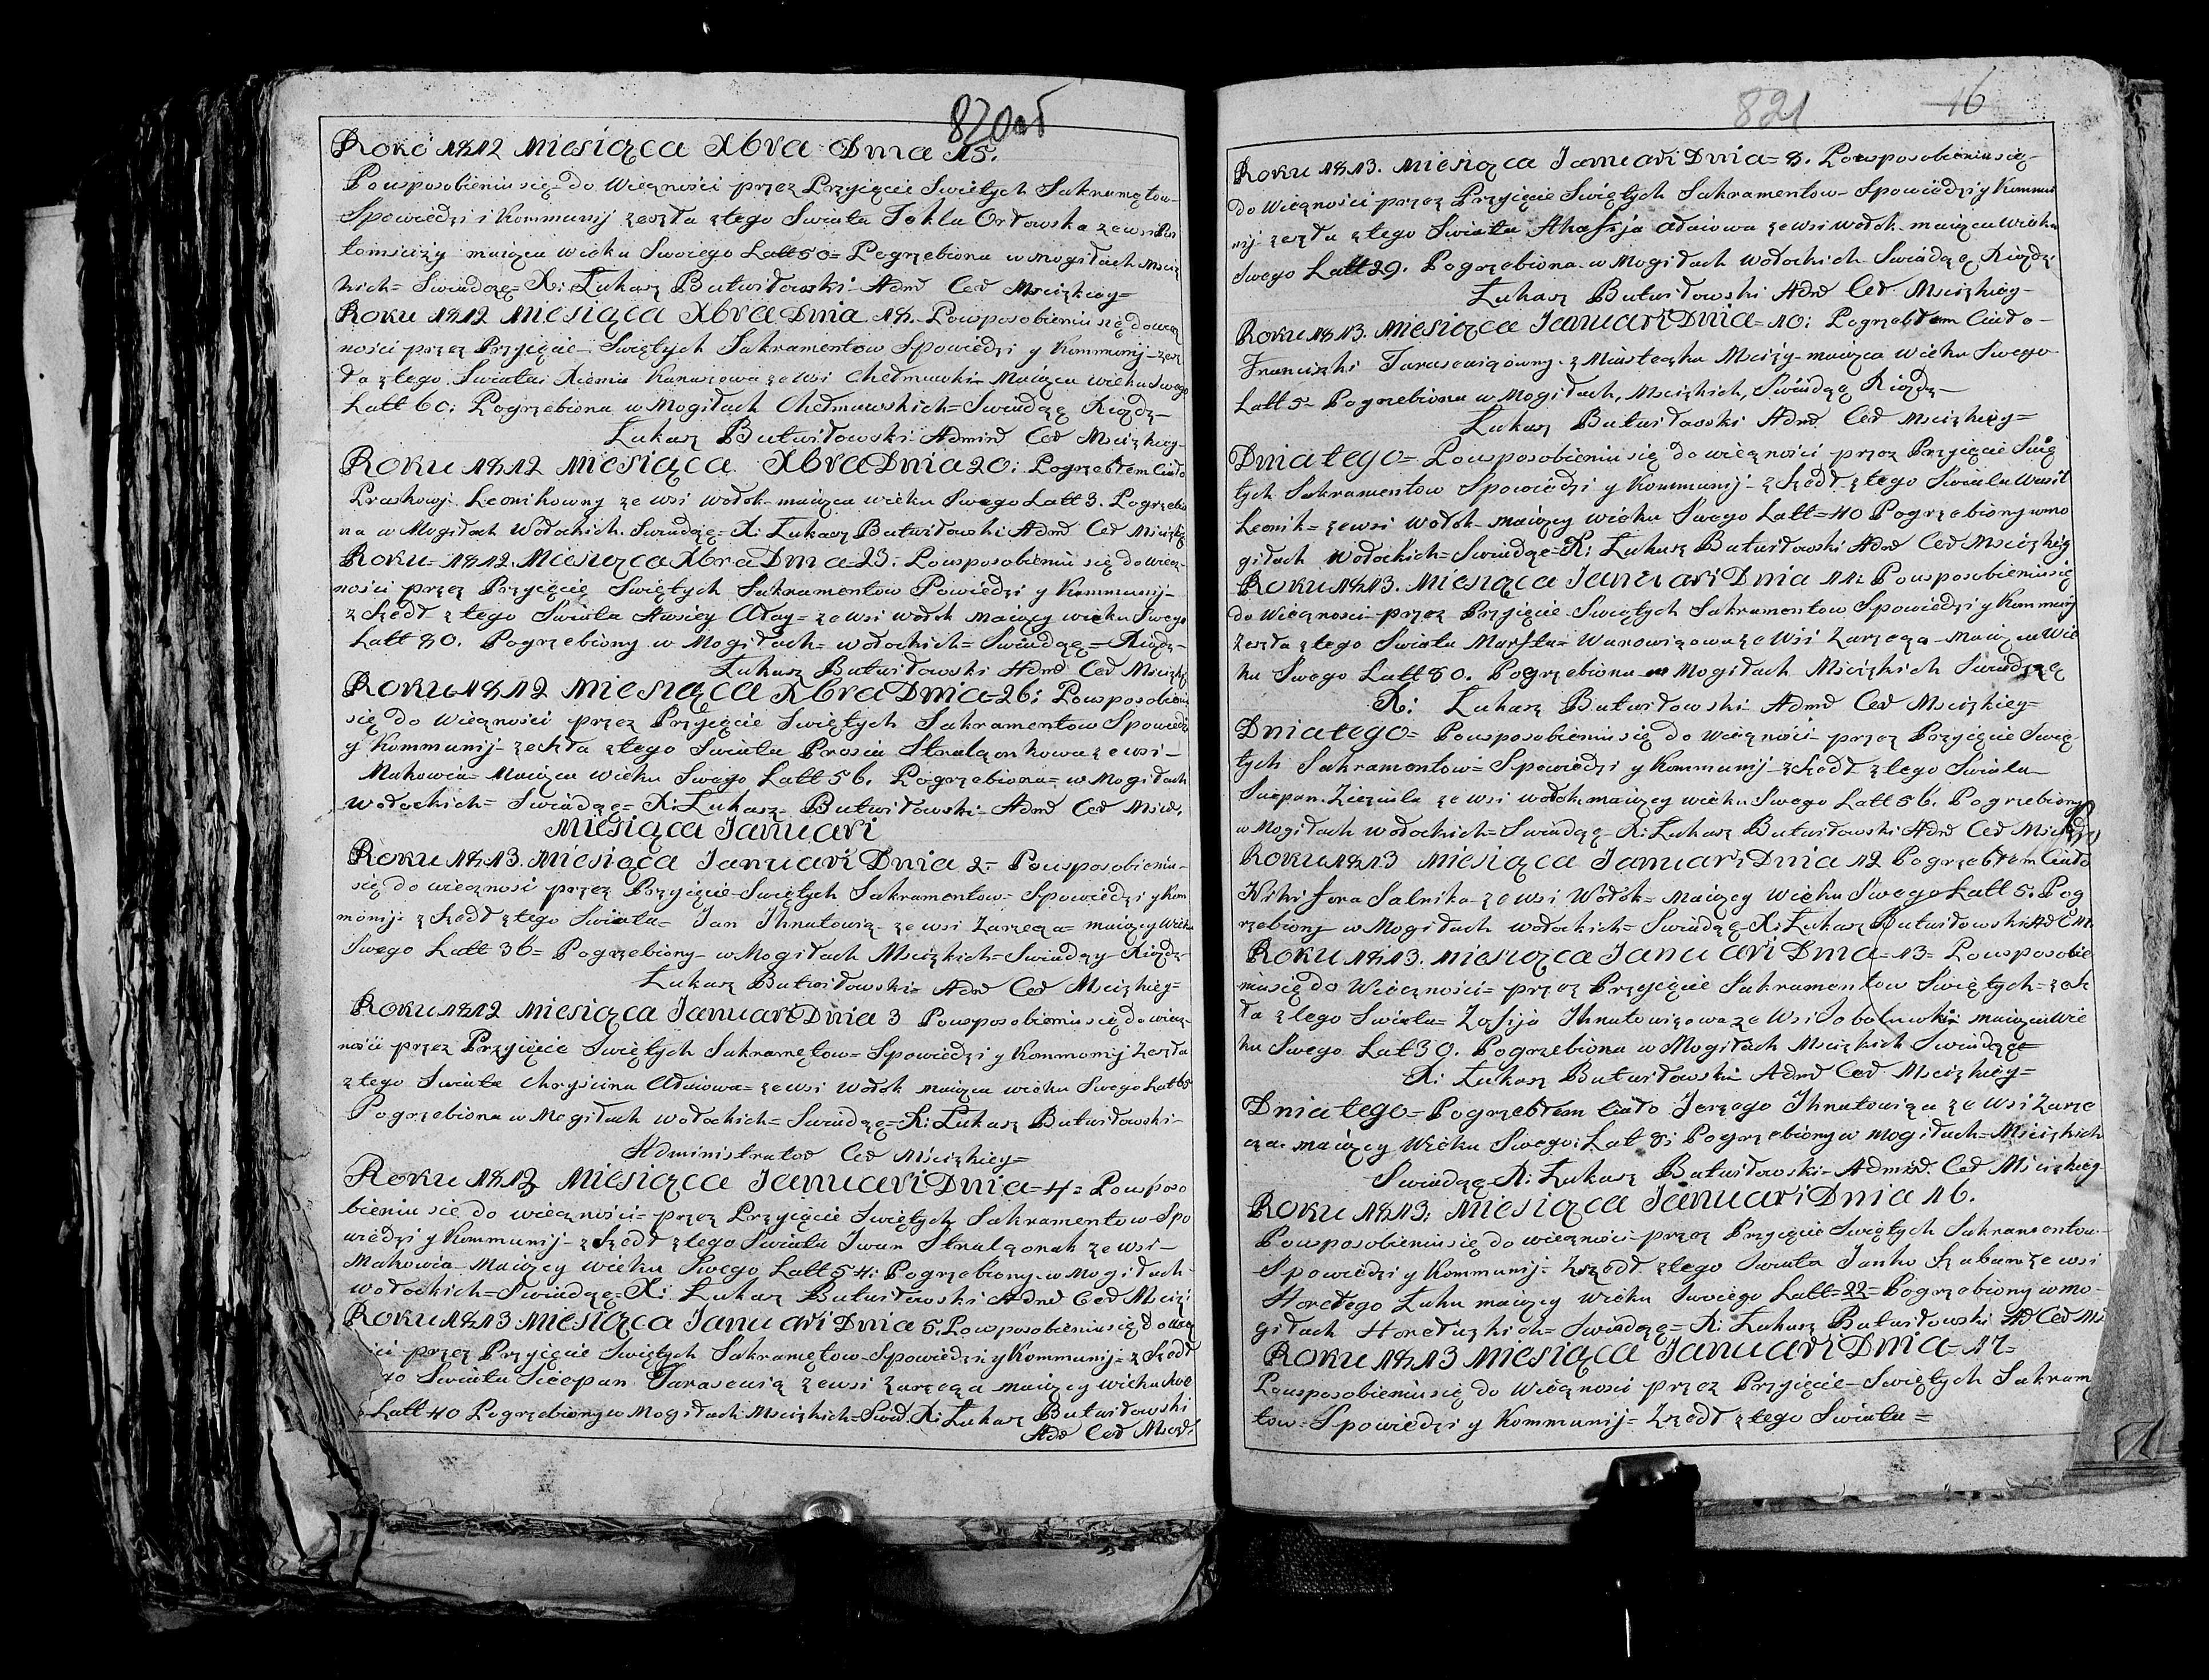 820об
Roku 1812 Miesiąca Xbra Dnia 15.
Pousposobieniu się do Wieczności przez Przyięcie Swiętych Sakramętow
Spowiedzi i Kommunij zeszła ztego Swiata Tekla Orłowska zewsi
maiąca Wieku Swoiego Latt 50= Pogrzebiona w Mogiłach Mscis
kich= Swiadczę= X: Łukasz Butwiłowski Admr Cer Mscizkiey=
Roku 1812 Miesiąca Xbra Dnia 18. Pousposobieniu się dowiecz
ności przez Przyięcie Swiętych Sakramentow Spowiedzi y Kommunij zesz
ła ztego Swiata Xienia Kanaszowa ze wsi Chełmawki Maiąca wieku Swego
Latt 60: Pogrzebiona w Mogiłach Chełmawskich= Swiadczę Xiądz
Łukasz Butwiłowski Adminr Cer Mscizkiey
Roku 1812 Miesiąca Xbra Dnia 20: Pogrzebłem Ciało
Praskowj Leonikowny ze wsi Wołok maiąca wieku Swego Latt 3. Pogrzebio
na w Mogiłach Wołockich. Swiadczę= X: Łukasz Butwiłowski Admr Cer Mscizk
Roku= 1812. Miesiąca Xbra Dnia=23: Pousposobieniu się do wiecz
ności przez Przyięcie Swiętych Sakramentow Powiedzi y Kommunij
zszedł ztego Swiata Awsiey Aday= ze wsi Wołok maiący wieku Swego
Latt 80. Pogrzebiony w Mogiłach= wołockich= Swiadczę= Xiądz
Łukasz Butwiłowski Admr Cer Mscizkj
Roku 1812 Miesiąca Xbra Dnia=26: Pousposobieniu
się do Wieczności przez Przyięcie Swiętych Sakramentow Spowiedzi
y Kommunij zeszła ztego Swiata Prosia Stralczonkowa zewsi
Makowia= Maiąca wieku Swego Latt 56. Pogrzebiona= w Mogiłach
Wołockich= Swiadczę= X: Łukasz Butwiłowski Admr Cer Mscis.
Miesiąca Januari
Roku 1813. Miesiąca Januari Dnia 2= Pousposobieniu
się do wiecznosi przez Przyięcie Swiętych Sakramentow= Spowiedzi y Kom
monij= zszedł ztego Swiata= Jan Ihnatowicz ze wsi Zarzecza= maiący Wieku
Swego Latt 36= Pogrzebiony w Mogiłach Mscizkich= Swiadczy Xiądz
Łukasz Butwiłowski= Admr Cer Mscizkiey=
Roku 1812 Miesiąca Januari Dnia 3 Pousposobieniu się do wiecz
ności przez Przyięcie Swiętych Sakramętow= Spowiedzi y Kommonij Zeszła
ztego Swiata Chryscina Adaiowa= ze wsi Wołok maiąca wieku Swego Latt 60
Pogrzebiona w Mogiłach Wołockich= Swiadczę= X: Łukasz Butwiłowski
Administrator Cer Mscizkiey=
Roku 1813 Miesiąca Januari Dnia=4= Pouspos
bieniu się do wieczności= przez Przyięcie Swiętych Sakramentow Spo
wiedzi y Kommunij zszedł ztego Swiata Iwan Stralczonak ze wsi
Makowia Maiący wieku Swego Latt 54: Pogrzebiony w Mogiłach
Wołockich= Swiadczę= X: Łukasz Butwiłowski Admr Cer Mscizi
Roku 1813 Miesiąca Januari Dnia 5: Pousposobieniu się do wiecz
ści przez Przyięcie Swiętych Sakramętow Spowiedzi y Kommunij= zszedł
go Swiata Sciepan Tarasewicz zewsi Zarzecza maiący wieku Swe
Latt 40 Pogrzebiony w Mogiłach Mscizkich= Swiad. X: Łukasz Butwiłowski
Admr Cer Mscizk
821
16
Roku 1813. Miesiąca Januari Dnia= 8. Pousposobieniu się
do Wieczności przez Przyięcie Swiętych Sakramentow Spowiedzi y Kommu
nij zeszła ztego Swiata Ahafija Adaiowa ze wsi Wołok maiąca Wieku
Swego Latt 29. Pogrzebiona w Mogiłach Wołockich Swiadczę Xiądz
Łukasz Butwiłowski Admr Cer Mscizkiey
Roku 1813. Miesiąca Januari Dnia=10: Pogrzebłem Ciało
Franciszki Tarasewiczowny z Miasteczka Mscizy maiąca wieku Swego
Latt 5 Pogrzebiona w Mogiłach, Mscizkich, Swiadczę Xiądz
Łukasz Butwiłowski Admr Cer Mscizkiey=
Dnia tego= Pousposobieniu się do wieczności przez Przyięcie Swię
tych Sakramentow Spowiedzi y Kommunij zszedł ztego Swiata Wasil
Leonik= ze wsi Wołok maiący wieku Swego Latt=40 Pogrzebiony w mo
giłach Wołockich= Swiadczę= X: Łukasz Butwiłowski Admr Cer Mscizkiey
Roku 1813. Miesiąca Januari Dnia 11: Pousposobieniu się
do Wieczności przez Przyięcie Swiętych Sakramentow Spowiedzi y Kommunij
zeszła ztego Swiata Marfta= Wanowiczowa ze Wsi Zarzecza Maiąca Wie
ku Swego Latt 80. Pogrzebiona w Mogiłach Mscizkich Swiadczę
X: Łukasz Butwiłowski Admr Cer Mscizkiey=
Dnia tego= Pousposobieniu się do wieczności przez Przyięcie Swię
tych Sakramentow= Spowiedzi y Kommunij zszedł ztego Swiata
Sciepan ze wsi Wołok maiący wieku Swego Latt 56. Pogrzebiony
w Mogiłach Wołockich= Swiadczę X: Łukasz Butwiłowski Admr Cer Mscizkiey
Roku 1813 Miesiąca Januari Dnia 12 Pogrzebłem Ciało
Nikifora Salnika ze wsi Wołok= Maiący Wieku Swego Latt 5. Pog
rzebiony w Mogiłach Wołockich= Swiadczę X: Łukasz Butwiłowski Ad C M.
Roku 1813. Miesiąca Januari Dnia=13= Pousposobie
niu się do Wieczności= przez Przyięcie Sakramentow Swiętych= zesz
ła ztego Swiata= Zofija Ihnatowiczowa ze Wsi maiąca Wie
ku Swego Lat 30. Pogrzebiona w Mogiłach Mscizkich Swiadczę=
X: Łukasz Butwiłowski Admr Cer Mscizkiey=
Dnia tego= Pogrzebłem Ciało Jerzego Ihnatowicza ze wsi Zarze
cza maiący Wieku Swego: Lat 8: Pogrzebiony w Mogiłach= Mscizkich
Swiadczę X: Łukasz Butwiłowski Admir. Cer Mscizkiey
Roku 1813: Miesiąca Januari Dnia 16.
Pousposobieniu się do wieczności przez Przyięcie Swiętych Sakramentow
Spowiedzi y Kommunij= Zszedł ztego Swiata Janko Szaban ze wsi
Horełego Łuhu maiący Wieku Swoiego Latt=22= Pogrzebiony w mo
giłach Horełuzkich= Swiadczę= X: Łukasz Butwiłowski Ad Cer Ms
Roku 1813 Miesiąca Januari Dnia= 17=
Pousposobieniu się do Wieczności przez Przyięcie Swiętych Sakram
tow= Spowiedzi y Kommunij= Zszedł ztego Swiata=